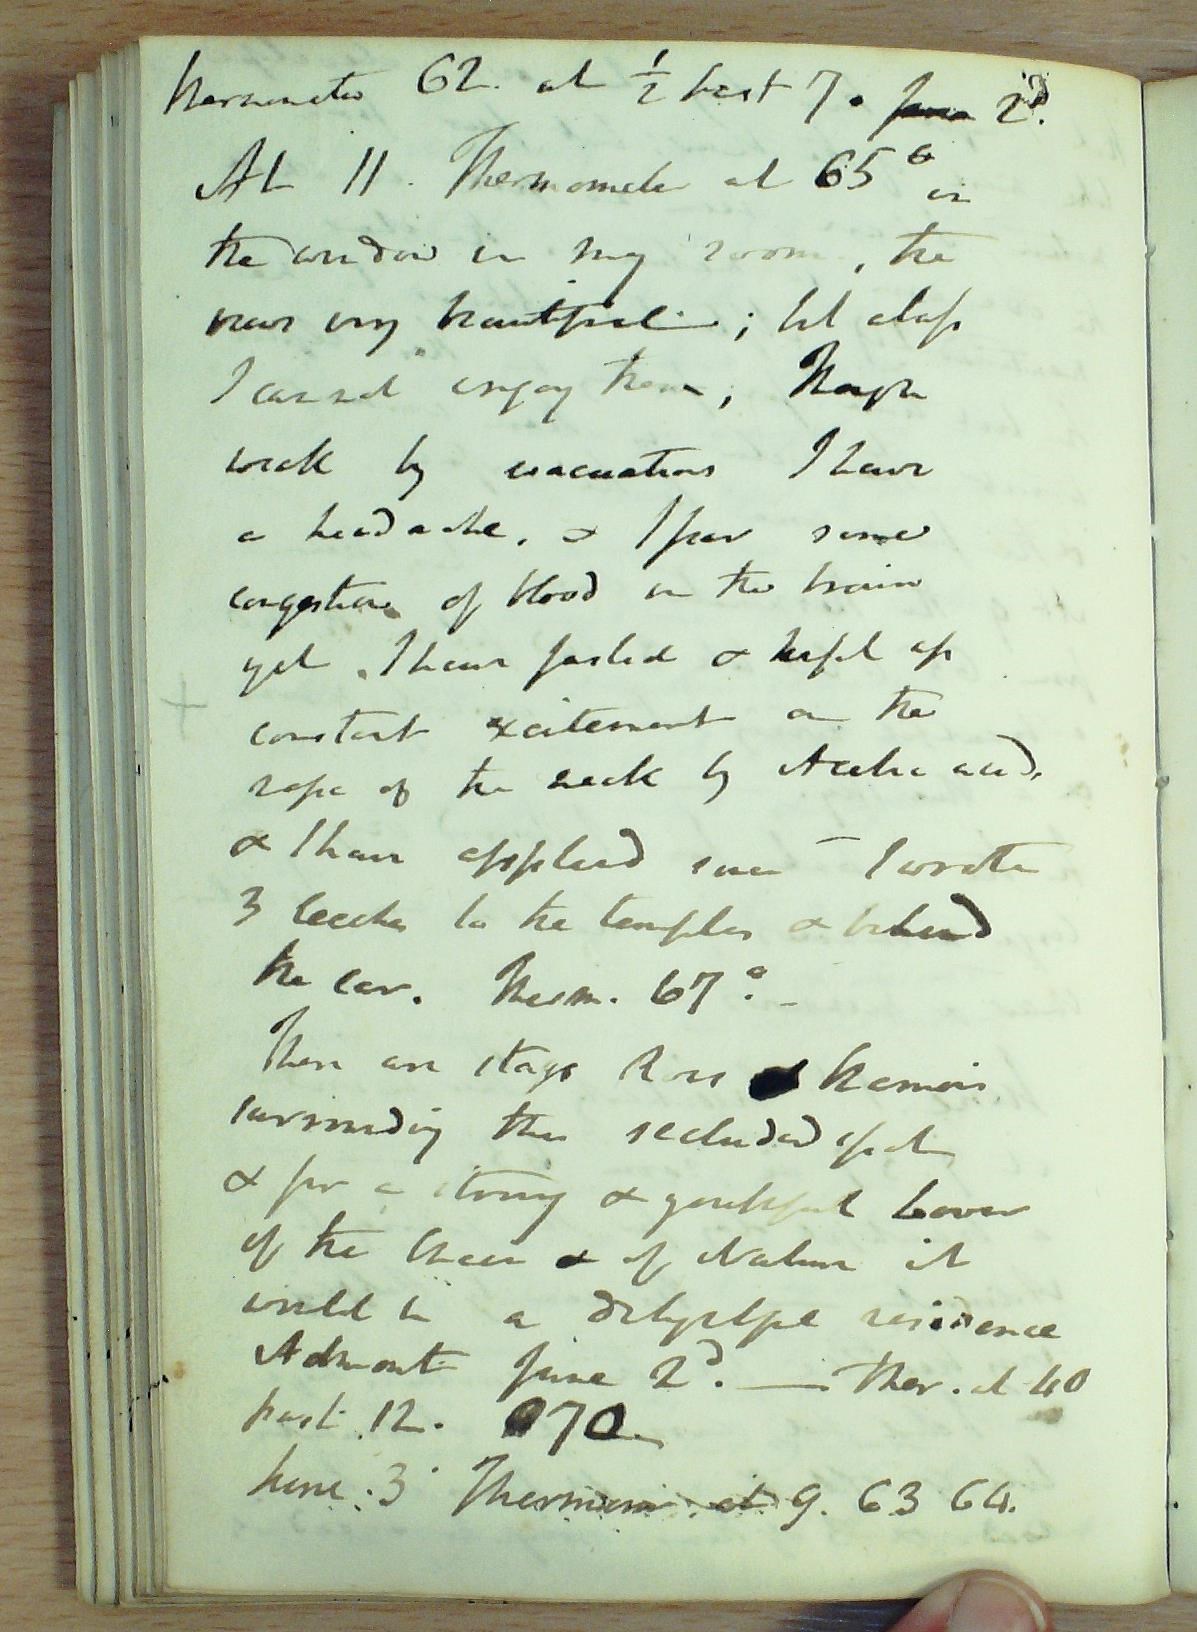 thermometer 62. at ½ past 7. June 2d.
At 11. Thermometer at 65° in
the window in my room, the
views very beautiful; but alass
I cannot enjoy them; Though
weak by evacuations I have
a headache. & I fear some
congestion of blood in the brain
yet. I have fasted & kept up
constant excitement on the
nape of the neck by Acetic acid.
& I have applied since I wrote
3 leeches to the temples & behind
the ear. Therm. 67°. -
There are stags Roes & Chamois
surrounding this secluded spot
& for a strong & youthful Lover
of the Chace & of Nature it
would be a delightful residence
Admont June 2d. — Ther. at 40
past 12. 70
June. 3 Thermom. at 9. 63 64.